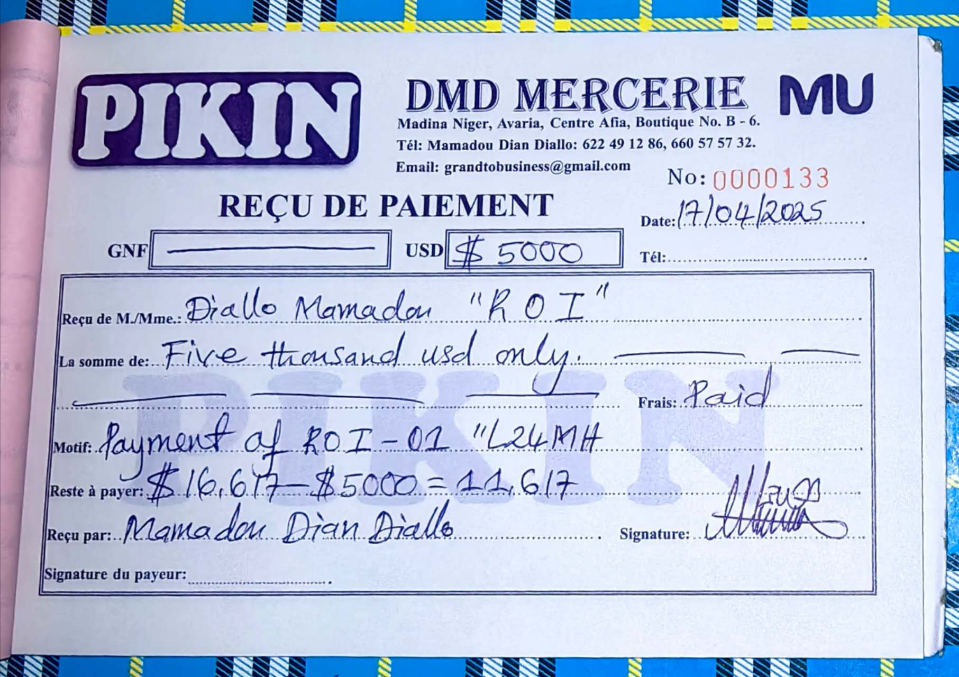 PIKIN
DMD MERCERIE
MU
Madina Niger, Avaria, Centre Afia, Boutique No. B - 6.
Tél: Mamadou Dian Diallo: 622 49 12 86, 660 57 57 32.
Email: grandtobusiness@gmail.com
No: 0000133
REÇU DE PAIEMENT
Date: 17/04/2025
GNF USD $ 5000 Tél:
Reçu de M./Mme.: Diallo Mamadou "R O I"
La somme de: Five thousand usd only.
Frais: Paid
Motif: Payment of ROI-01 "L24MH
Reste à payer: $16,617-$5000 = 11,617
Reçu par: Mamadou Dian Diallo Signature:
Signature du payeur:
PIKIN